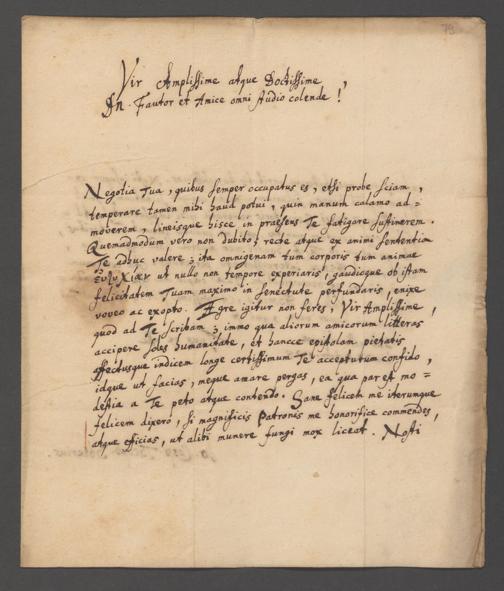 79
Vir Amplissime atque Doctissime
Dn. Fautor et Amice omni studio colende!
Negotia Tua, quibus semper occupatus es, etsi probe sciam,
temperare tamen mihi haud potui, quin manum calamo ad:
moverem, lineisque hisce in praesens Te fatigare sustinerem.
Quemadmodum vero non dubito, recte atque ex animi sententia
Te adhuc valere; ita omnigenam tum corporis tum animae
ut nullo non tempore experiaris, gaudioque ob istam
felicitatem Tuam maximo in senectute perfundaris, enixe
voveo ac exopto. Ægre igitur non feres, Vir Amplissime,
quod ad Te scribam; immo qua aliorum amicorum litteras
accipere soles humanitate, et hancce epistolam pietatis
affectusque indicem longe certissimum Te accepturum confido,
idque ut facias, meque amare pergas, ea qua par est mo=
destia a Te peto atque contendo. Sane felicem me iterumque
felicem dixero, si magnificis Patronis me honorifice commendes,
atque efficias, ut alibi munere fungi mox liceat. Nosti